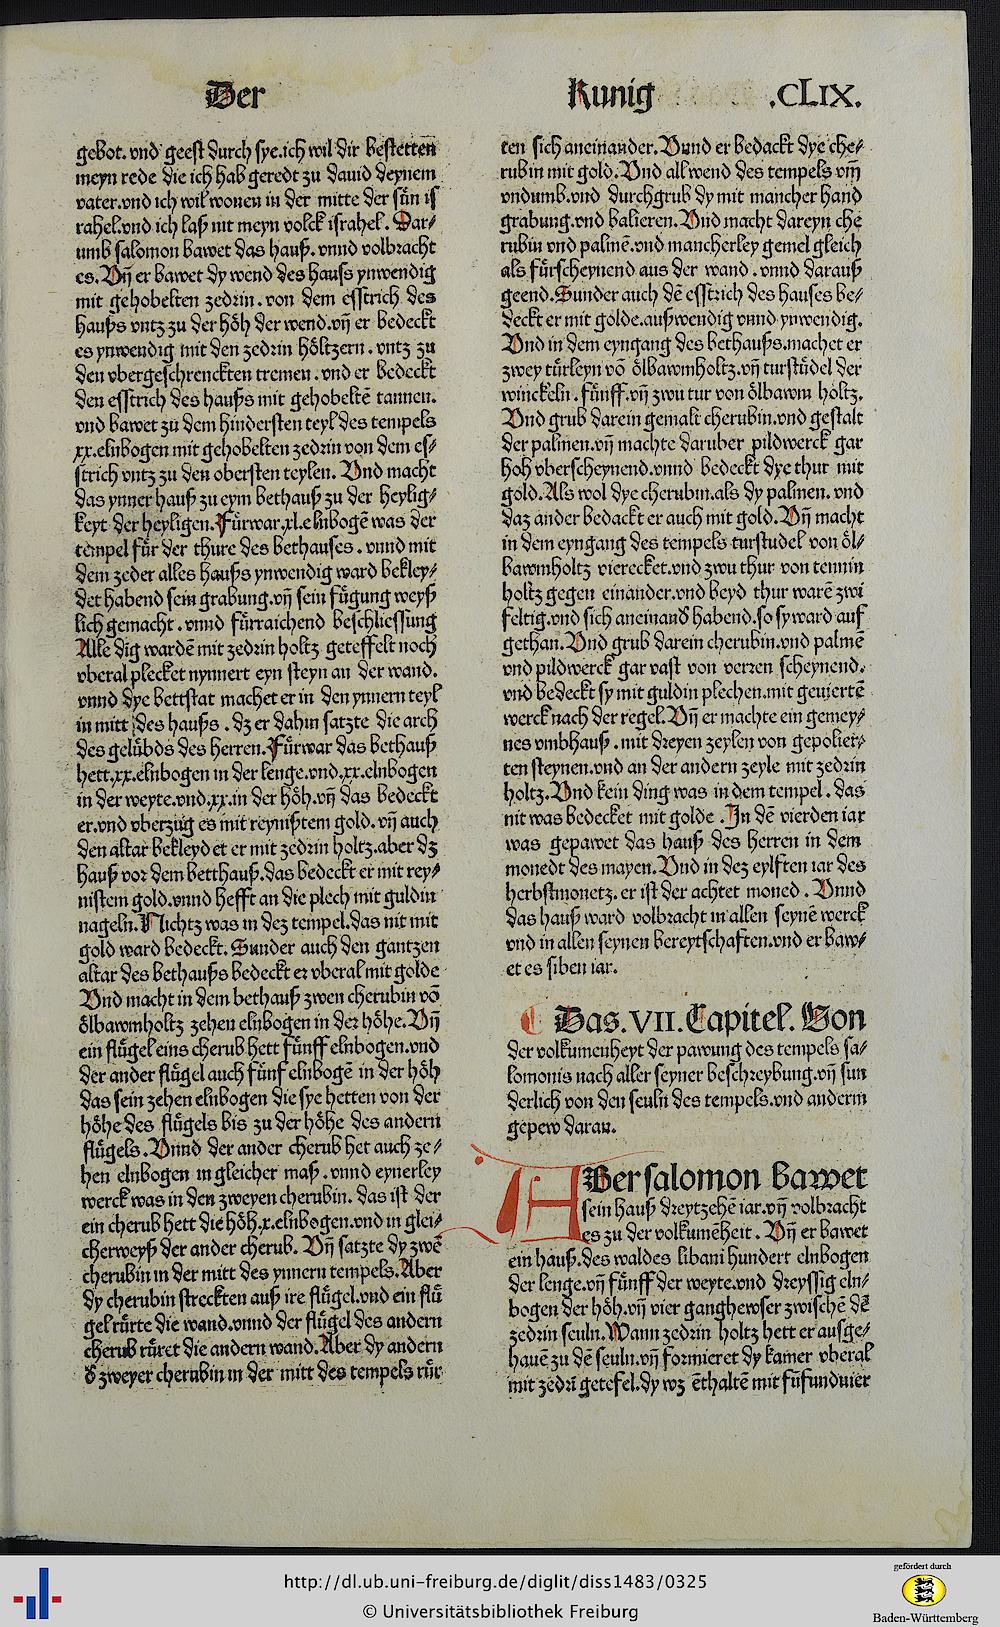 Der
Kunig .CLIX.
gebot. vnd geest durch sye.ich wil dir bestetten
meyn rede die ich hab geredt zu dauid deynem
vater.vnd ich wil wonen in der mitte der sün is
rahel.vnd ich laß nit meyn volck israhel. Dar⸗
umb salomon bawet das hauß. vnnd volbracht
es. Vñ er bawet dy wend des hauß ynwendig
mit gehobelten zedrin. von dem esstrich des
hauß vntz zu der höh der wend.vñ er bedeckt
es ynwendig mit den zedrin höltzern. vntz zu
den vbergeschrenckten tremen. vnd er bedeckt
den esstrich des hauß mit gehobeltē tannen.
vnd bawet zu dem hindersten teyl des tempels
xx.elnbogen mit gehobelten zedrin von dem es⸗
strich vntz zu den obersten teylen. Vnd macht
das ynner hauß zu eym bethauß zu der heylig⸗
keyt der heyligen.Fürwar.xl.elnbogē was der
tempel für der thure des bethauses. vnnd mit
dem zeder alles hauß ynwendig ward bekley⸗
det habend sein grabung.vñ sein fügung weyß
lich gemacht. vnnd fürraichend beschliessung
Alle dig wardē mit zedrin holtz geteffelt noch
vberal plecket nynnert eyn steyn an der wand.
vnnd dye bettstat machet er in den ynnern teyl
in mitt des hauß. dz er dahin satzte die arch
des gelübds des herren.Fürwar das bethauß
hett.xx.elnbogen in der lenge.vnd.xx.elnbogen
in der weyte.vnd.xx.in der höh.vñ das bedeckt
er.vnd vberzug es mit reynißtem gold. vñ auch
den altar bekleydet er mit zedrin holtz.aber dz
hauß vor dem betthauß.das bedeckt er mit rey⸗
nistem gold.vnnd hefft an die plech mit guldin
nageln. Nichtz was in dez tempel.das nit mit
gold ward bedeckt. Sunder auch den gantzen
altar des bethauß bedeckt er vberal mit golde
Vnd macht in dem bethauß zwen cherubin võ
ölbawmholtz zehen elnbogen in der höhe. Vñ
ein flügel eins cherub hett fünff elnbogen.vnd
der ander flügel auch fünf elnbogē in der höh
das sein zehen elnbogen die sye hetten von der
höhe des flügels bis zu der höhe des andern
flügels. Vnnd der ander cherub het auch ze⸗
hen elnbogen in gleicher maß. vnnd eynerley
werck was in den zweyen cherubin. das ist der
ein cherub hett die höh.x.elnbogen.vnd in glei⸗
cherweyß der ander cherub. Vñ satzte dy zwē
cherubin in der mitt des ynnern tempels. Aber
dy cherubin streckten auß ire flügel.vnd ein flü
gel rürte die wand.vnnd der flügel des andern
cherub rüret die andern wand. Aber dy andern
d̕ zweyer cherubin in der mitt des tempels rür
ten sich aneinander. Vnnd er bedackt dye che⸗
rubin mit gold. Vnd all wend des tempels vm̄
vndumb.vnd durchgrub dy mit mancher hand
grabung.vnd balieren. Vnd macht dareyn che
rubin vnd palmē.vnd mancherley gemel gleich
als fürscheynend aus der wand. vnnd darauß
geend. Sunder auch dē esstrich des hauses be⸗
deckt er mit golde.außwendig vnnd ynwendig.
Vnd in dem eyngang des bethauß.machet er
zwey türleyn võ ölbawmholtz.vñ turstüdel der
winckeln. fünff.vñ zwu tur von ölbawm holtz.
Vnd grub darein gemalt cherubin.vnd gestalt
der palmen.vñ machte daruber pildwerck gar
hoh vberscheynend.vnnd bedeckt dye thur mit
gold. Als wol dye cherubin.als dy palmen. vnd
daz ander bedackt er auch mit gold. Vñ macht
in dem eyngang des tempels turstudel von öl⸗
bawmholtz vierecket.vnd zwu thur von tennin
holtz gegen einander.vnd beyd thur warē zwi
feltig.vnd sich aneinand̕ habend.so sy ward auf
gethan. Vnd grub darein cherubin.vnd palmē
vnd pildwerck gar vast von verren scheynend.
vnd bedeckt sy mit guldin plechen.mit geuiertē
werck nach der regel. Vñ er machte ein gemey⸗
nes vmbhauß. mit dreyen zeylen von gepolier⸗
ten steynen.vnd an der andern zeyle mit zedrin
holtz. Vnd kein ding was in dem tempel. das
nit was bedecket mit golde. In dē vierden iar
was gepawet das hauß des herren in dem
monedt des mayen. Vnd in dez eylften iar des
herbstmonetz. er ist der achtet moned. Vnnd
das hauß ward volbracht in allen seynē werck
vnd in allen seynen bereytschaften.vnd er baw⸗
et es siben iar.
Das. VII. Capitel. Von
der volkumenheyt der pawung des tempels sa⸗
lomonis nach aller seyner beschreybung.vñ sun
derlich von den seuln des tempels.vnd anderm
gepew daran.
ABer salomon bawet
sein hauß dreytzehē iar.vñ volbracht
es zu der volkumēheit. Vñ er bawet
ein hauß.des waldes libani hundert elnbogen
der lenge.vñ fünff der weyte.vnd dreyssig eln⸗
bogen der höh.vñ vier ganghewser zwischē dē
zedrin seuln. Wann zedrin holtz hett er ausge⸗
hauē zu dē seuln.vñ formieret dy kamer vberal
mit zedrī getefel.dy wz ēthaltē mit fūfundvier
http://dl.ub.uni-freiburg.de/diglit/diss1483/0325
© Universitätsbibliothek Freiburg
gefördert durch
Baden-Württemberg